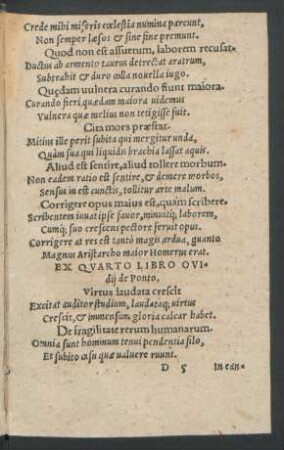 Crede mihi miseris cœlestia numina parcunt,
Non semper læsos & sine fine premunt.
Quod non est assuetum, laborem recusat.
Ductus ab armento taurus detrectat aratrum,
Subtrahit & duro colla nouella iugo.
Quędam uulnera curando fiunt maiora.
Curando fieri quædam maiora uidemus
Vulnera quæ melius non tetigisse fuit.
Cita mors præstat.
Mitius ille perit subita qui mergitur unda,
Quàm sua qui liquidis brachia lassat aquis.
Aliud est sentire, aliud tollere morbum.
Non eadem ratio est sentire, & demere morbos,
Sensus in est cunctis, tollitur arte malum.
Corrigere opus maius est, quàm scribere.
Scribentem iuuat ipse fauor, minuitq; laborem,
Cumq; suo crescens pectore feruit opus.
Corrigere at res est tantò magis ardua, quanto
Magnus Aristarcho maior Homerus erat.
EX QVARTO LIBRO OVI-
dij de Ponto,
Virtus laudata crescit
Excitat auditor studium, laudataq; uirtus
Crescit, & immensum gloria calcar habet.
De fragilitate rerum humanarum.
Omnia sunt hominum tenui pendentia filo,
Et subito casu quæ ualuere ruunt.
D 5 In ean-